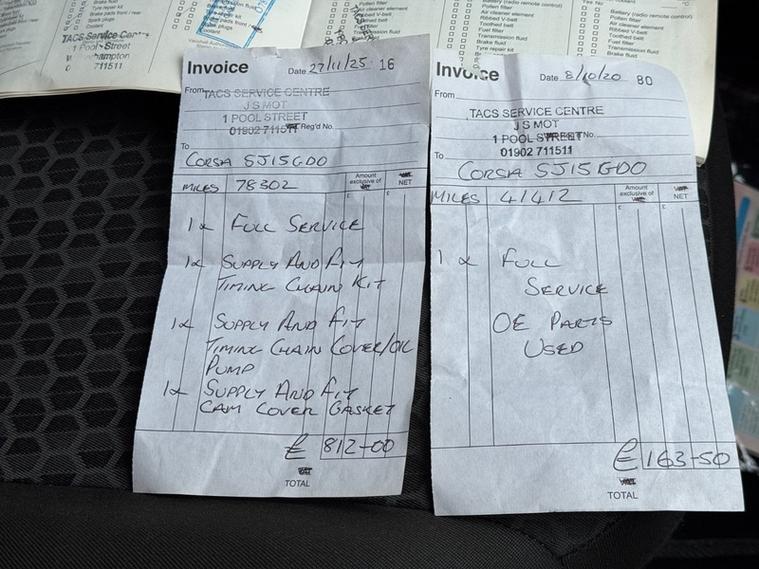 TACS Service
1 Pool Street
hampton
711511
Spark plugs
Brake pads front / rear
Brake fluid
Coolant
Pollen filter
Air cleaner element
Ribbed V-belt
Toothed belt
Fuel filter
Transmission fluid
Brake fluid
Battery (radio remote control)
Pollen filter
Air cleaner element
Ribbed V-belt
Toothed belt
Fuel filter
Transmission fluid
Brake fluid
Tyre repair kit
Battery (radio remote control)
Pollen filter
Air cleaner element
Ribbed V-belt
Toothed belt
Fuel filter
Transmission fluid
Brake fluid
Invoice
Date 27/11/25 16
From
TACS SERVICE CENTRE
J S MOT
1 POOL STREET
01902 711511 Reg'd No.
To
CORSA SJ15GDO
MILES 78302 Amount exclusive of NET
£ £
1 x FULL SERVICE
1x SUPPLY AND FIT
TIMING CHAIN KIT
1x SUPPLY AND FIT
TIMING CHAIN COVER/OIL
PUMP
1x SUPPLY AND FIT
CAM COVER GASKET
£ 812-00
TOTAL
Invoice
Date 8/10/20 80
From
TACS SERVICE CENTRE
J S MOT
1 POOL STREET No.
01902 711511
To
CORSA SJ15 GDO
MILES 41412 Amount exclusive of NET
£ £
1 x FULL
SERVICE
OE PARTS
USED
£ 163-50
TOTAL